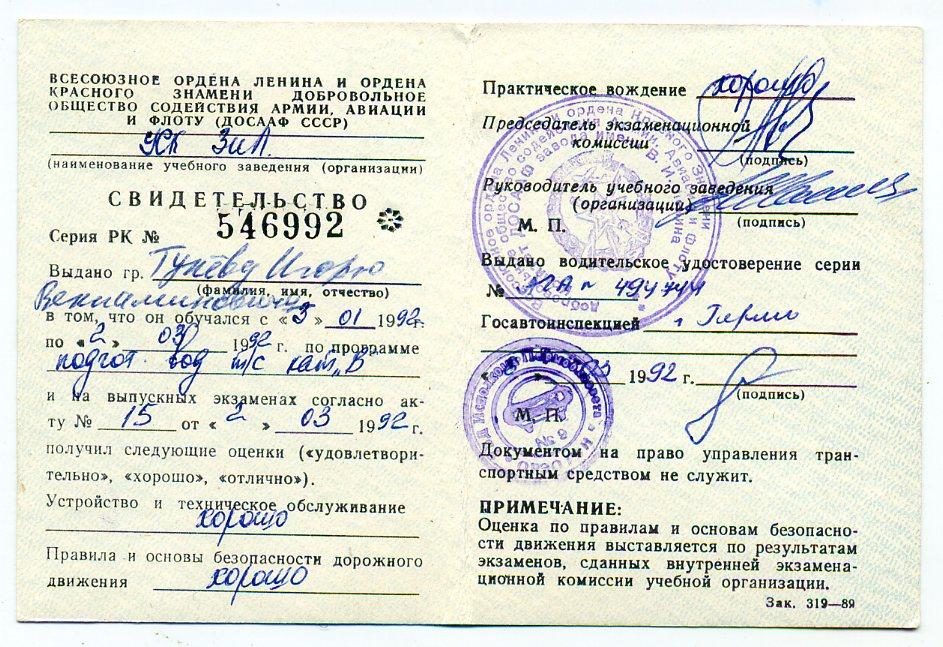 ВСЕСОЮЗНОЕ ОРДЕНА ЛЕНИНА И ОРДЕНА
КРАСНОГО ЗНАМЕНИ ДОБРОВОЛЬНОЕ
ОБЩЕСТВО СОДЕЙСТВИЯ АРМИИ, АВИАЦИИ
И ФЛОТУ (ДОСААФ СССР)
УК ЗиЛ
(наименование учебного заведения (организации)
СВИДЕТЕЛЬСТВО
Серия РК № 546992
Выдано гр. Игорю
(фамилия, имя, отчество)
Вениаминовичу
в том, что он обучался с «3» 01 1992 г.
по «2» 03 1992 г. по программе
подгот. вод т/с кат. „В"
и на выпускных экзаменах согласно ак-
ту № 15 от «2» 03 1992 г.
получил следующие оценки («удовлетвори-
тельно», «хорошо», «отлично»).
Устройство и техническое обслуживание
хорошо
Правила и основы безопасности дорожного
движения хорошо
Практическое вождение хорошо
Председатель экзаменационной
комиссии
(подпись)
Руководитель учебного заведения
(организации)
М. П.
(подпись)
Выдано водительское удостоверение серии
№ 494744
Госавтоинспекцией г.
1992 г.
(подпись)
М. П.
Документом на право управления тран-
спортным средством не служит.
ПРИМЕЧАНИЕ:
Оценка по правилам и основам безопасно-
сти движения выставляется по результатам
экзаменов, сданных внутренней экзамена-
ционной комиссии учебной организации.
Зак. 319—89